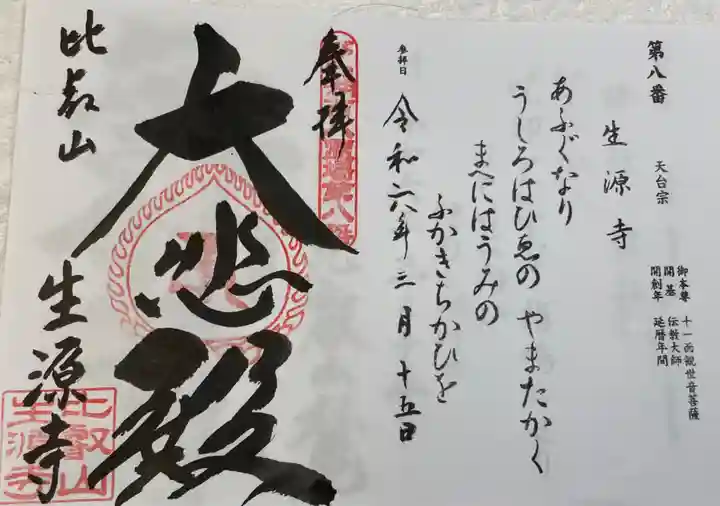 第八番
生源寺 天台宗
御本尊 十一面観世音菩薩
開基 伝教大師
開創年 延暦年間
あふぐなり
うしろはひゑの やまたかく
まへにはうみの
ふかきちかひを
参拝日 令和六年三月十五日
奉拝
大悲殿
比叡山 生源寺
比叡山
生源寺